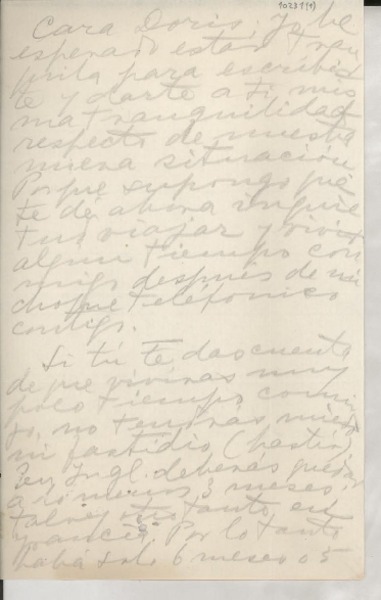 10231(1)
Cara Doris: Yo he
esperado estar tran
quila para escribir
te y darte a ti mis
ma tranquilidad
respecto de nuestra
nueva situación.
Porque supongo que
te dé ahora inquie
tud viajar y vivir
algún tiempo con
migo después de mi
choque telefónico
contigo.
Si tú te das cuenta
de que vivirás muy
poco tiempo conmi
go, no tendrás miedo
ni fastidio (hastío)
En Ingl. deberás quedar
a lo menos 3 meses.
Talvez otro tanto en
Francia. Por lo tanto
habrá solo 6 meses o 5